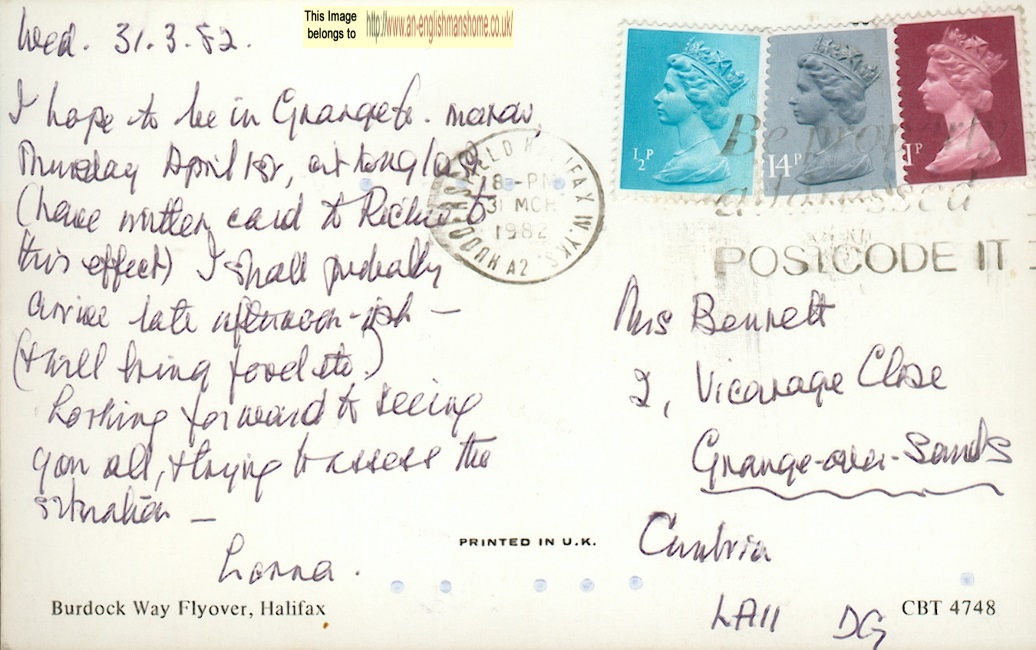 Wed. 31.3.82.
This Image
belongs to
http://www.an-englishmanshome.co.uk/
I hope to be in Grange to-morrow,
Thursday April 1st, at long last
(have written card to Richie to
this effect) I shall probably
arrive late afternoon-ish —
(& will bring food etc.)
Looking forward to seeing
you all, & trying to assess the
situation —
Lorna.
1/2P
14P
1P
HUDDERSFIELD HALIFAX W. YKS
8-PM
31 MCH
1982
A2
Be properly
addressed
POSTCODE IT
Mrs Bennett
2, Vicarage Close
Grange-over-Sands
Cumbria
LA11 DG
PRINTED IN U.K.
Burdock Way Flyover, Halifax
CBT 4748